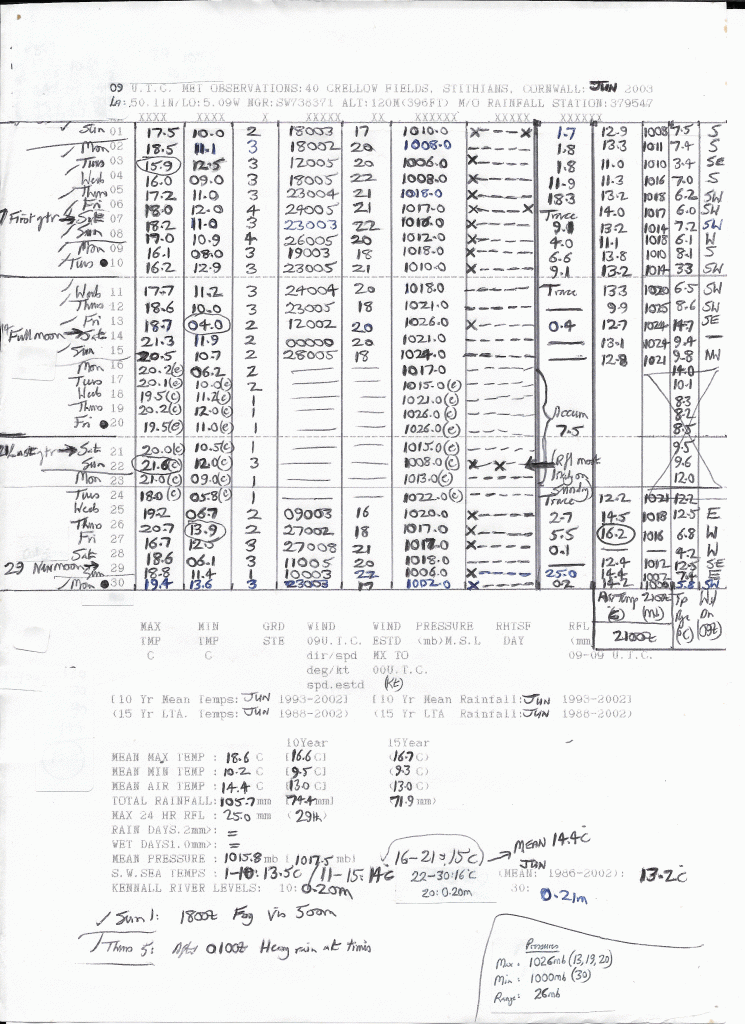 09 U.T.C. MET OBSERVATIONS:40 CRELLOW FIELDS, STITHIANS, CORNWALL: JUN 2003
La:50.11N/LO:5.09W NGR:SW736371 ALT:120M(396FT) M/O RAINFALL STATION:379547
XXXX XXXX X XXXXX XX XXXXXX XXXXX XXXXXX
Sun 01 17.5 10.0 2 18003 17 1010.0 x---x 1.7 12.9 1008 7.5 S
Mon 02 18.5 11.1 3 18002 20 1008.0 x---- 1.8 13.3 1011 7.4 S
Tues 03 15.9 12.5 3 12005 20 1006.0 x---- 1.8 11.0 1010 3.4 SE
Wed 04 16.0 09.0 3 18005 22 1008.0 x---- 11.9 11.3 1016 7.0 S
Thurs 05 17.2 11.0 3 23004 21 1018.0 x---- 18.3 13.2 1018 6.2 SW
Fri 06 18.0 12.0 4 24005 21 1017.0 x---x Trace 14.0 1017 6.0 SW
First qtr → Sat 07 18.2 11.0 3 23003 22 1016.0 x---- 9.1 13.2 1014 7.2 SW
Sun 08 17.0 10.9 4 26005 20 1012.0 x---- 4.0 11.1 1018 6.1 W
Mon 09 16.1 08.0 3 19003 18 1018.0 x---- 6.6 13.8 1010 8.1 S
Tues 10 16.2 12.9 3 23005 21 1010.0 x---- 9.1 13.2 1014 3.3 SW
Wed 11 17.7 11.2 3 24004 20 1018.0 Trace 13.3 1020 6.5 SW
Thurs 12 18.6 10.0 3 23005 18 1021.0 — 9.9 1025 8.6 SW
Fri 13 18.7 04.0 2 12002 20 1026.0 0.4 12.7 1024 14.7 SE
Full moon → Sat 14 21.3 11.9 2 00000 20 1021.0 — 13.1 1024 9.4 —
Sun 15 20.5 10.7 2 28005 18 1024.0 — 12.8 1021 9.8 NW
Mon 16 20.2(e) 06.2 2 — — 1017.0 14.0
Tues 17 20.1(e) 10.0(e) 2 — — 1015.0(e) 10.1
Wed 18 19.5(e) 11.2(e) 1 — — 1021.0(e) 8.3
Thurs 19 20.2(e) 12.0(e) 1 — — 1026.0(e) Accum 8.2
Fri 20 19.5(e) 11.0(e) 1 — — 1026.0(e) 7.5 8.5
Last qtr → Sat 21 20.0(e) 10.5(e) 1 — — 1015.0(e) 9.5
Sun 22 21.6(e) 12.0(e) 3 — — 1008.0(e) x x (Rfl most 9.6
Mon 23 21.0(e) 09.0(e) 1 — — 1013.0(e) likely on Sunday) 12.0
Tues 24 18.0(e) 05.8(e) 1 — — 1022.0(e) Trace 12.2 1021 12.2
Wed 25 19.2 06.7 2 09003 16 1020.0 x---- 2.7 14.5 1018 12.5 E
Thurs 26 20.7 13.9 2 27002 18 1017.0 x---- 5.5 16.2 1016 6.8 W
Fri 27 16.7 12.0 3 27008 21 1017.0 x---- 0.1 — — 4.2 W
Sat 28 18.6 06.1 3 11005 20 1018.0 — 12.4 1012 12.5 SE
29 New moon → Sun 29 18.8 11.4 1 10003 22 1006.0 x---- 25.0 14.4 1002 7.4 E
Mon 30 19.4 13.6 3 23003 17 1002.0 x---- 0.2 14.2 1006 5.8 SW
Air Temp (c) 2100Z (mb) Tp Rge (°C) Wd Dn (09Z)
2100Z
MAX MIN GRD WIND WIND PRESSURE RHTSF RFL
TMP TMP STE 09U.T.C. ESTD (mb)M.S.L DAY (mm
C C dir/spd MX TO 09-09 U.T.C.
deg/kt 00U.T.C.
spd.estd (Kt)
[10 Yr Mean Temps: JUN 1993-2002] [10 Yr Mean Rainfall: JUN 1993-2002]
(15 Yr LTA. Temps: JUN 1988-2002) (15 Yr LTA Rainfall: JUN 1988-2002)
10Year 15Year
MEAN MAX TEMP : 18.6 C [16.6 C] (16.7 C)
MEAN MIN TEMP : 10.2 C [9.5 C] (9.3 C)
MEAN AIR TEMP : 14.4 C [13.0 C] (13.0 C)
TOTAL RAINFALL: 105.7 mm [74.4 mm] 71.9 mm)
MAX 24 HR RFL : 25.0 mm (29th)
RAIN DAYS.2mm>: =
WET DAYS1.0mm>: =
MEAN PRESSURE : 1015.8 mb [1017.5 mb) 16-21: 15c) → MEAN 14.4c
S.W.SEA TEMPS : 1-10: 13.5c / 11-15: 14c 22-30:16c JUN (MEAN: 1986-2002): 13.2c
KENNALL RIVER LEVELS: 10: 0.20m 20: 0.20m 30: 0.21m
✓ Sun 1: 1800Z Fog Vis 500m
Thurs 5: 0100Z Heavy rain at times
Pressures
Max = 1026mb (13,19,20)
Min = 1000mb (30)
Range: 26mb